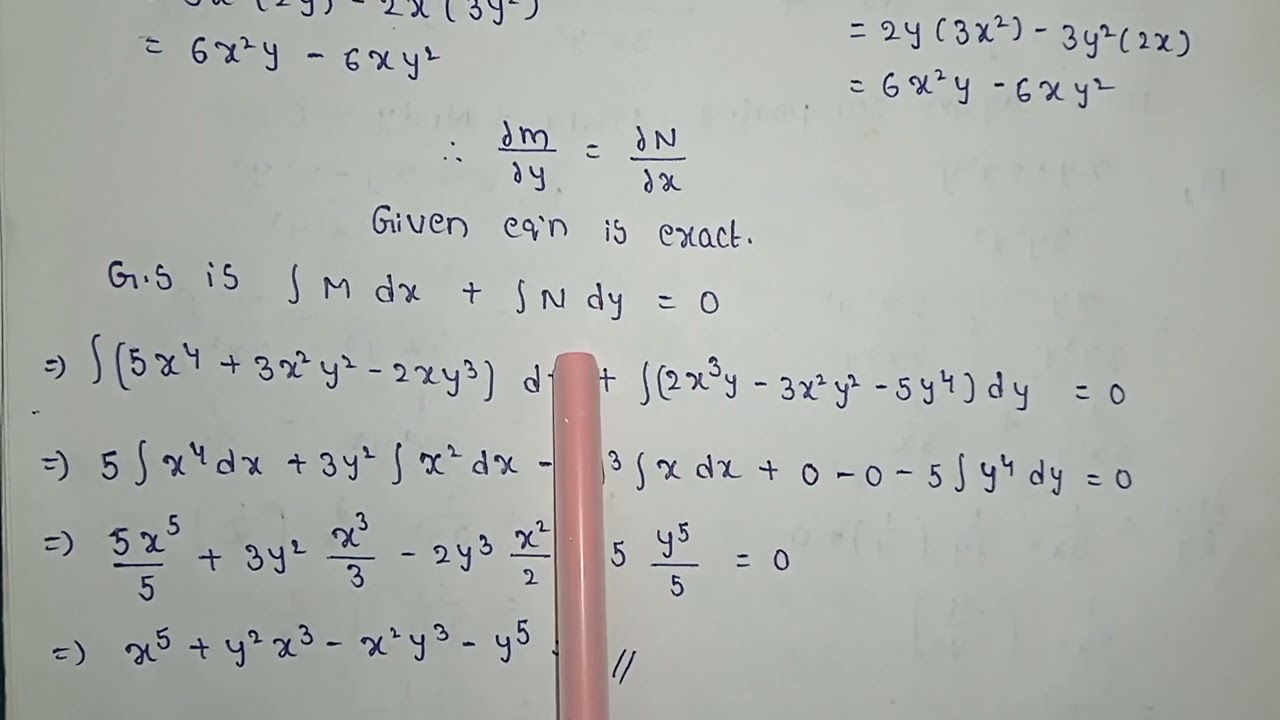 (2y) - 2x (3y²)
= 6x²y - 6xy²
= 2y (3x²) - 3y² (2x)
= 6x²y - 6xy²
∴ ∂m/∂y = ∂N/∂x
Given eq'n is exact.
G.S is ∫ M dx + ∫ N dy = 0
=) ∫ (5x⁴ + 3x²y² - 2xy³) d + ∫ (2x³y - 3x²y² - 5y⁴) dy = 0
=) 5 ∫ x⁴ dx + 3y² ∫ x² dx - ³ ∫ x dx + 0 - 0 - 5 ∫ y⁴ dy = 0
=) 5x⁵/5 + 3y² x³/3 - 2y³ x²/2 5 y⁵/5 = 0
=) x⁵ + y²x³ - x²y³ - y⁵ //